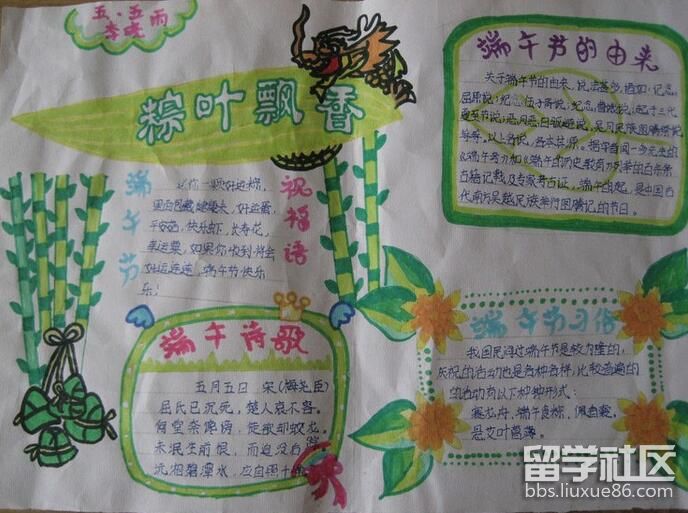 五.五雨
粽叶飘香
端午节
祝福语
送你一颗好运粽,
平安茜,快乐虾,长寿花,
幸运栗,如果你收到将会
好运连连,端午节快乐
乐!
端午节的由来
关于端午节的由来,说法甚多,诸如:纪念
屈原说;纪念伍子胥说;纪念曹娥说;起于三代
夏至节说;恶月恶日驱避说,吴月民族图腾祭说
等等。以上各说,各本其源。据学者闻一多先生的
《端午考》和《端午的历史教育》列举的百余条
古籍记载及专家考古证,端午的起,是中国古
代南方吴越民族举行图腾记的节日。
端午诗歌
五月五日 宋(梅尧臣)
屈氏已沉死,楚人哀不容。
何尝奈谗谤,徒欲却蛟龙。
未泯生前恨,而追没后
沅湘碧潭水,应自照千
端午节习俗
我国民间过端午节是较为隆的,
庆祝的活动也是各种各样,比较普遍的
的活动有以下种种形式:
赛龙舟,端午食粽,佩香囊,
悬艾叶菖蒲。
留学社区
bbs.liuxue86.com